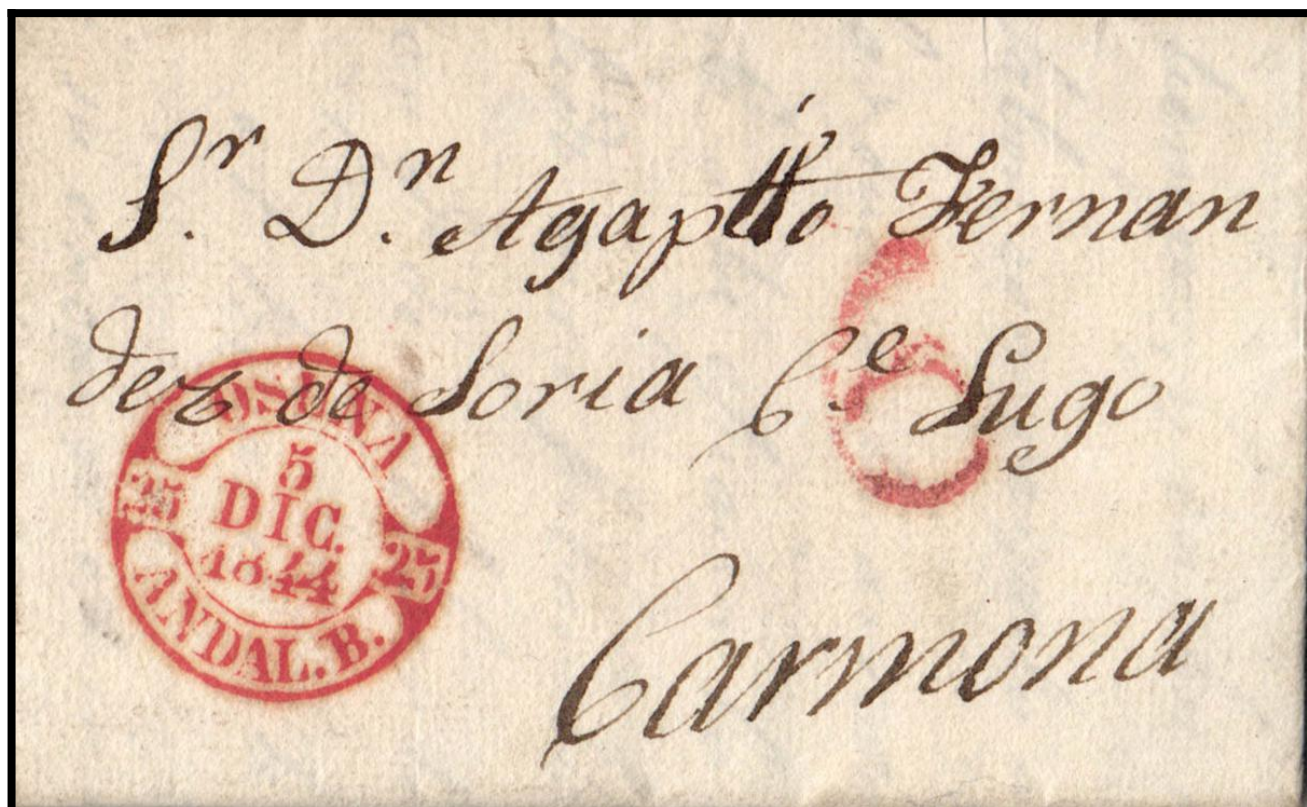 Sr. Dn. Agapito Fernan
dez de Soria Ce. Lugo
Carmona
6
OSUNA
25 5 25
DIC.
1844
ANDAL. B.